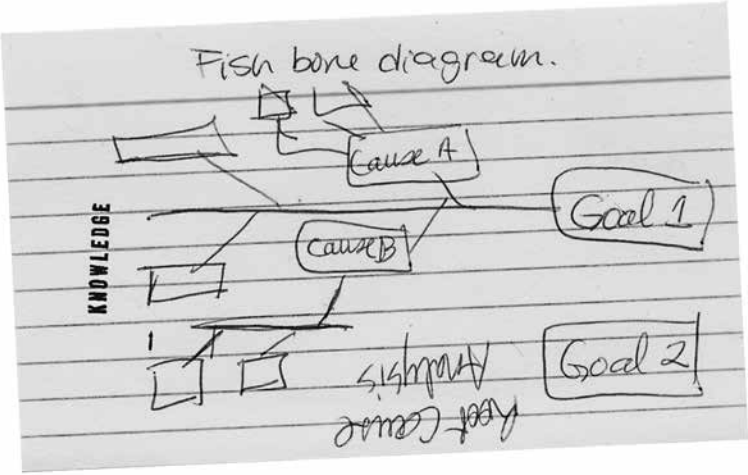 Fish bone diagram.
Cause A
Goal 1
KNOWLEDGE
Cause B
Goal 2
Root Cause
Analysis